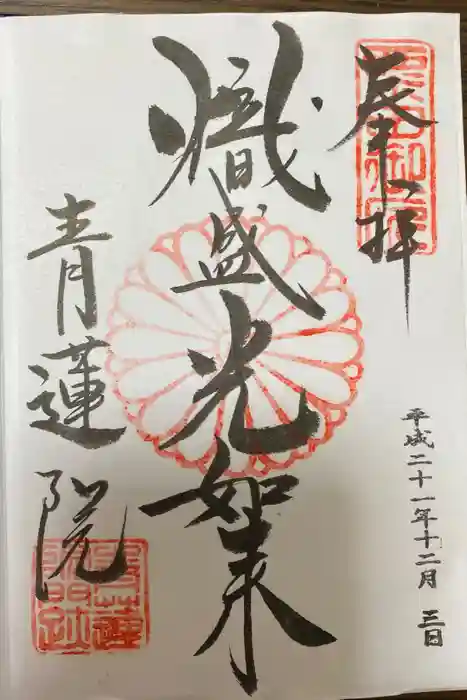 奉拝
平成二十一年十二月三日
熾盛光如来
青蓮院